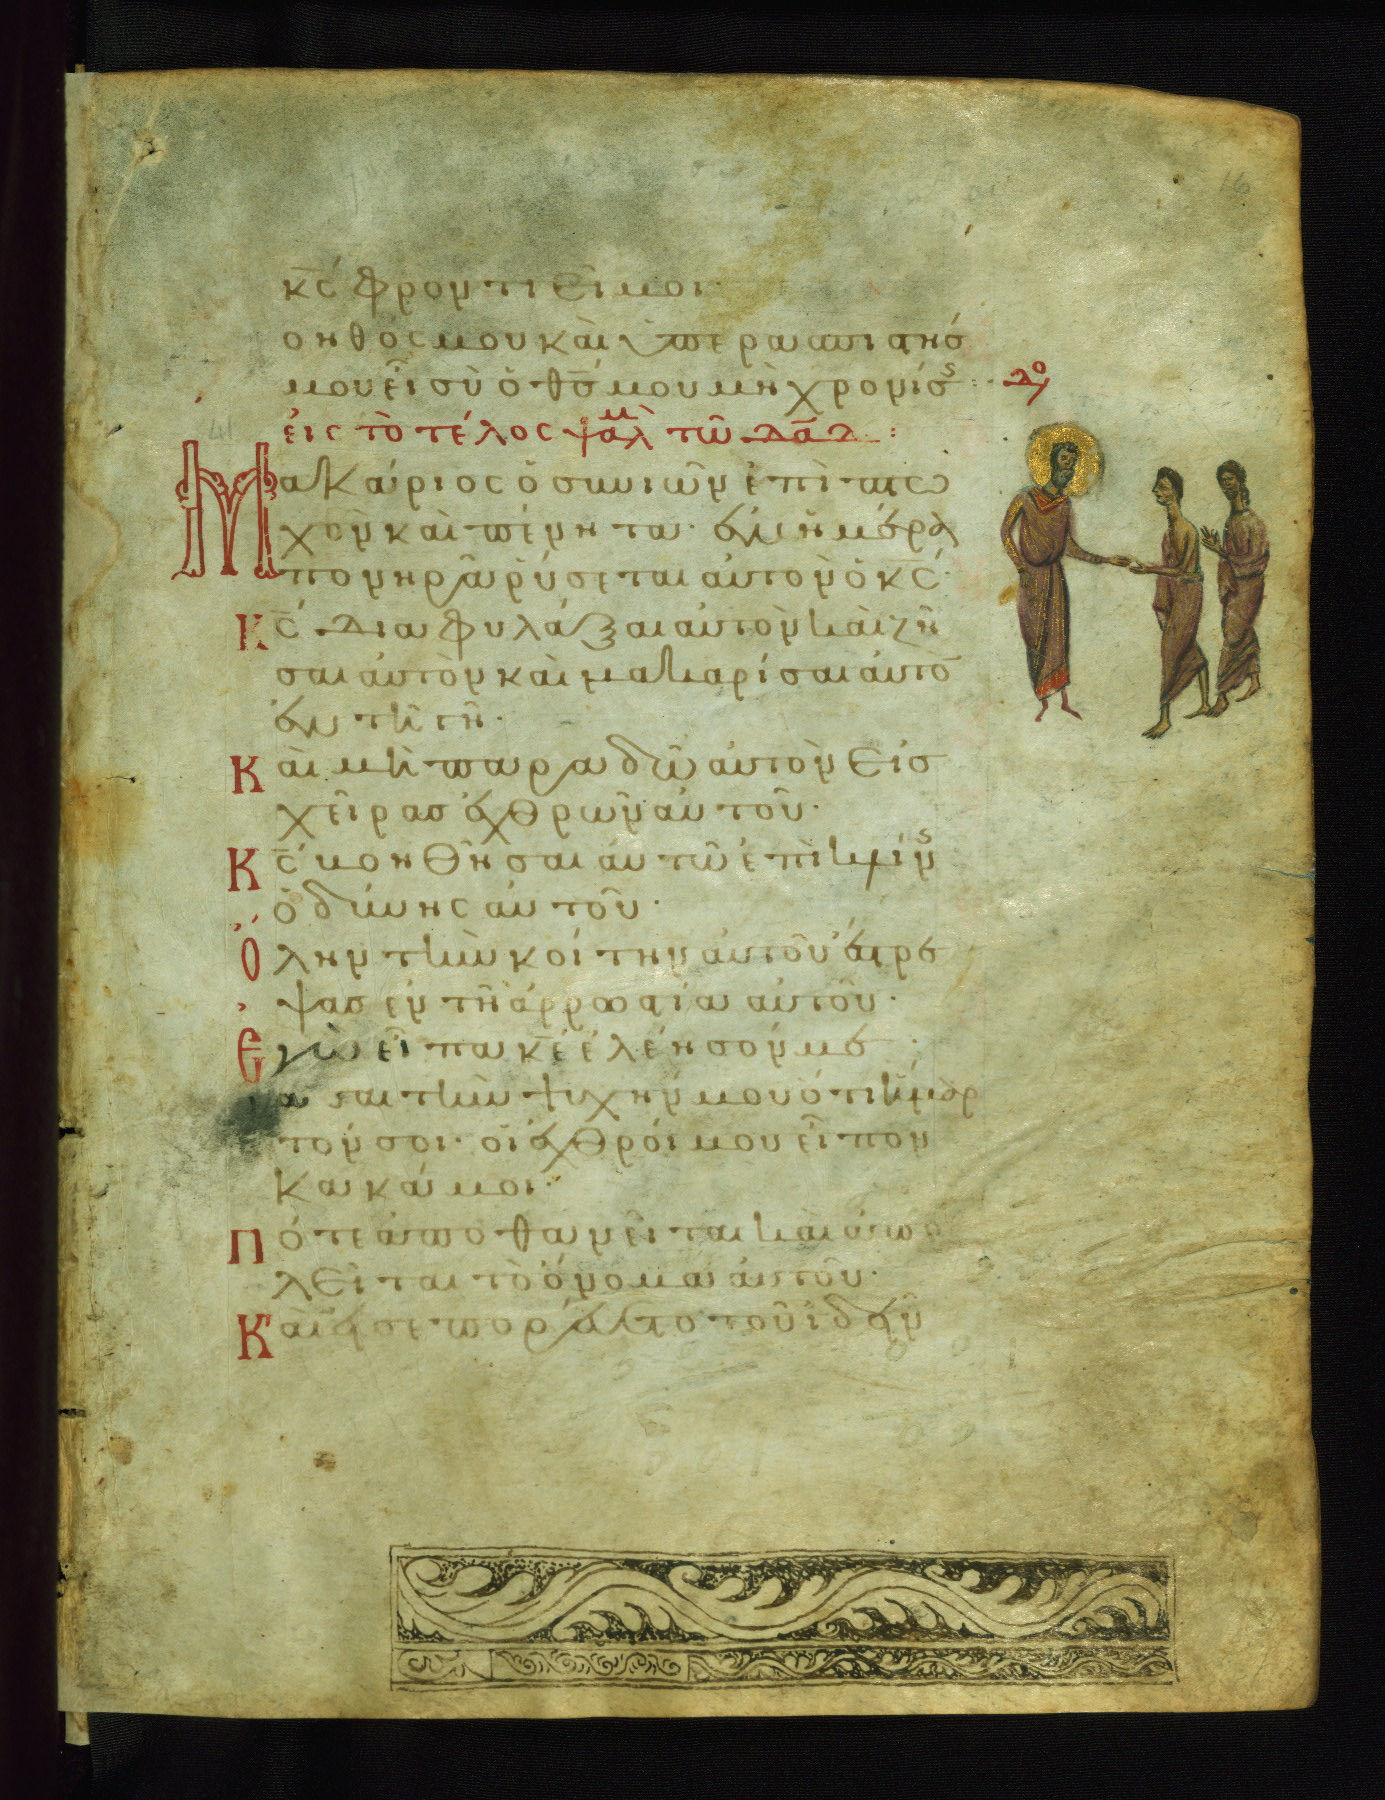 16
κ̅ς̅ φροντιεῖ μοι·
βοηθός μου καὶ ὑπερασπιστής
μου εἶ σὺ ὁ θ̅ς̅ μου μὴ χρονίσῃς:
μ
εἰς τὸ τέλος ψαλμ τῶ δα̅δ:
41
Μακάριος ὁ συνιῶν ἐπὶ πτω
χὸν καὶ πένητα· ἐν ἡμέρα
πονηρᾶ ῥύσεται αὐτὸν ὁ κ̅ς̅·
Κ̅ς̅ διαφυλάξαι αὐτὸν καὶ ζῆ
σαι αὐτὸν καὶ μακαρίσαι αὐτὸ̅
ἐν τῆ γῆ·
Καὶ μὴ παραδῶ αὐτὸν εἰς
χεῖρας ἐχθρῶν αὐτοῦ·
Κ̅ς̅ βοηθῆσαι αὐτῶ ἐπὶ κλίνης
ὀδύνης αὐτοῦ·
Ὅλην τὴν κοίτην αὐτοῦ ἔστρε
ψας ἐν τῆ ἀρρωστία αὐτοῦ·
Ἐγὼ εἶπα κ̅ε̅ ἐλέησόν με
ἴασαι τὴν ψυχήν μου ὅτι ἥμαρ
τόν σοι· οἱ ἐχθροί μου εἶπον
κακά μοι·
Πότε ἀποθανεῖται καὶ ἀπο
λεῖται τὸ ὄνομα αὐτοῦ·
Καὶ εἰσεπορεύετο τοῦ ἰδεῖν